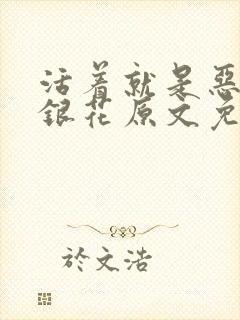 活着就是惡
銀花原文免
於文浩